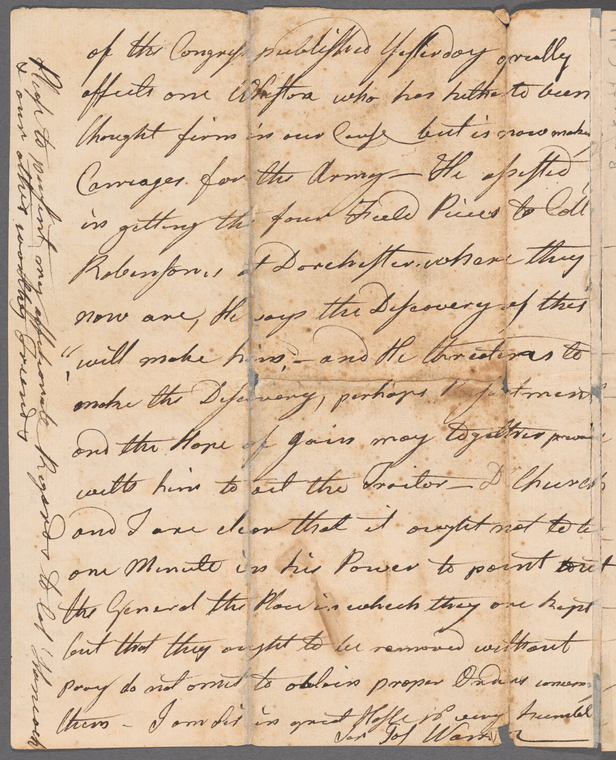 of the Congress published Yesterday greatly
affects one Whiston who has hitherto been
thought firm in our Cause but is now making
Carriages for the Army — He assisted
in getting the four Field Pieces to Coll
Robinson's at Dorchester, where they
now are, He says the Discovery of this
"will make him," — and He threatens to
make the Discovery, perhaps Resentment
and the Hope of Gain may together prevail
with him to act the Traitor — Dr Church
and I are clear that it ought not to be
one Minute in his Power to point out
the General the Place in which they are kept
but that they ought to be removed without
pray do not omit to obtain proper Orders concerning
them — I am Sir in great Haste yr very humble
Ser Jos Warren
Please to present my affectionate Regards to Col Hancock
& our other worthy Friends